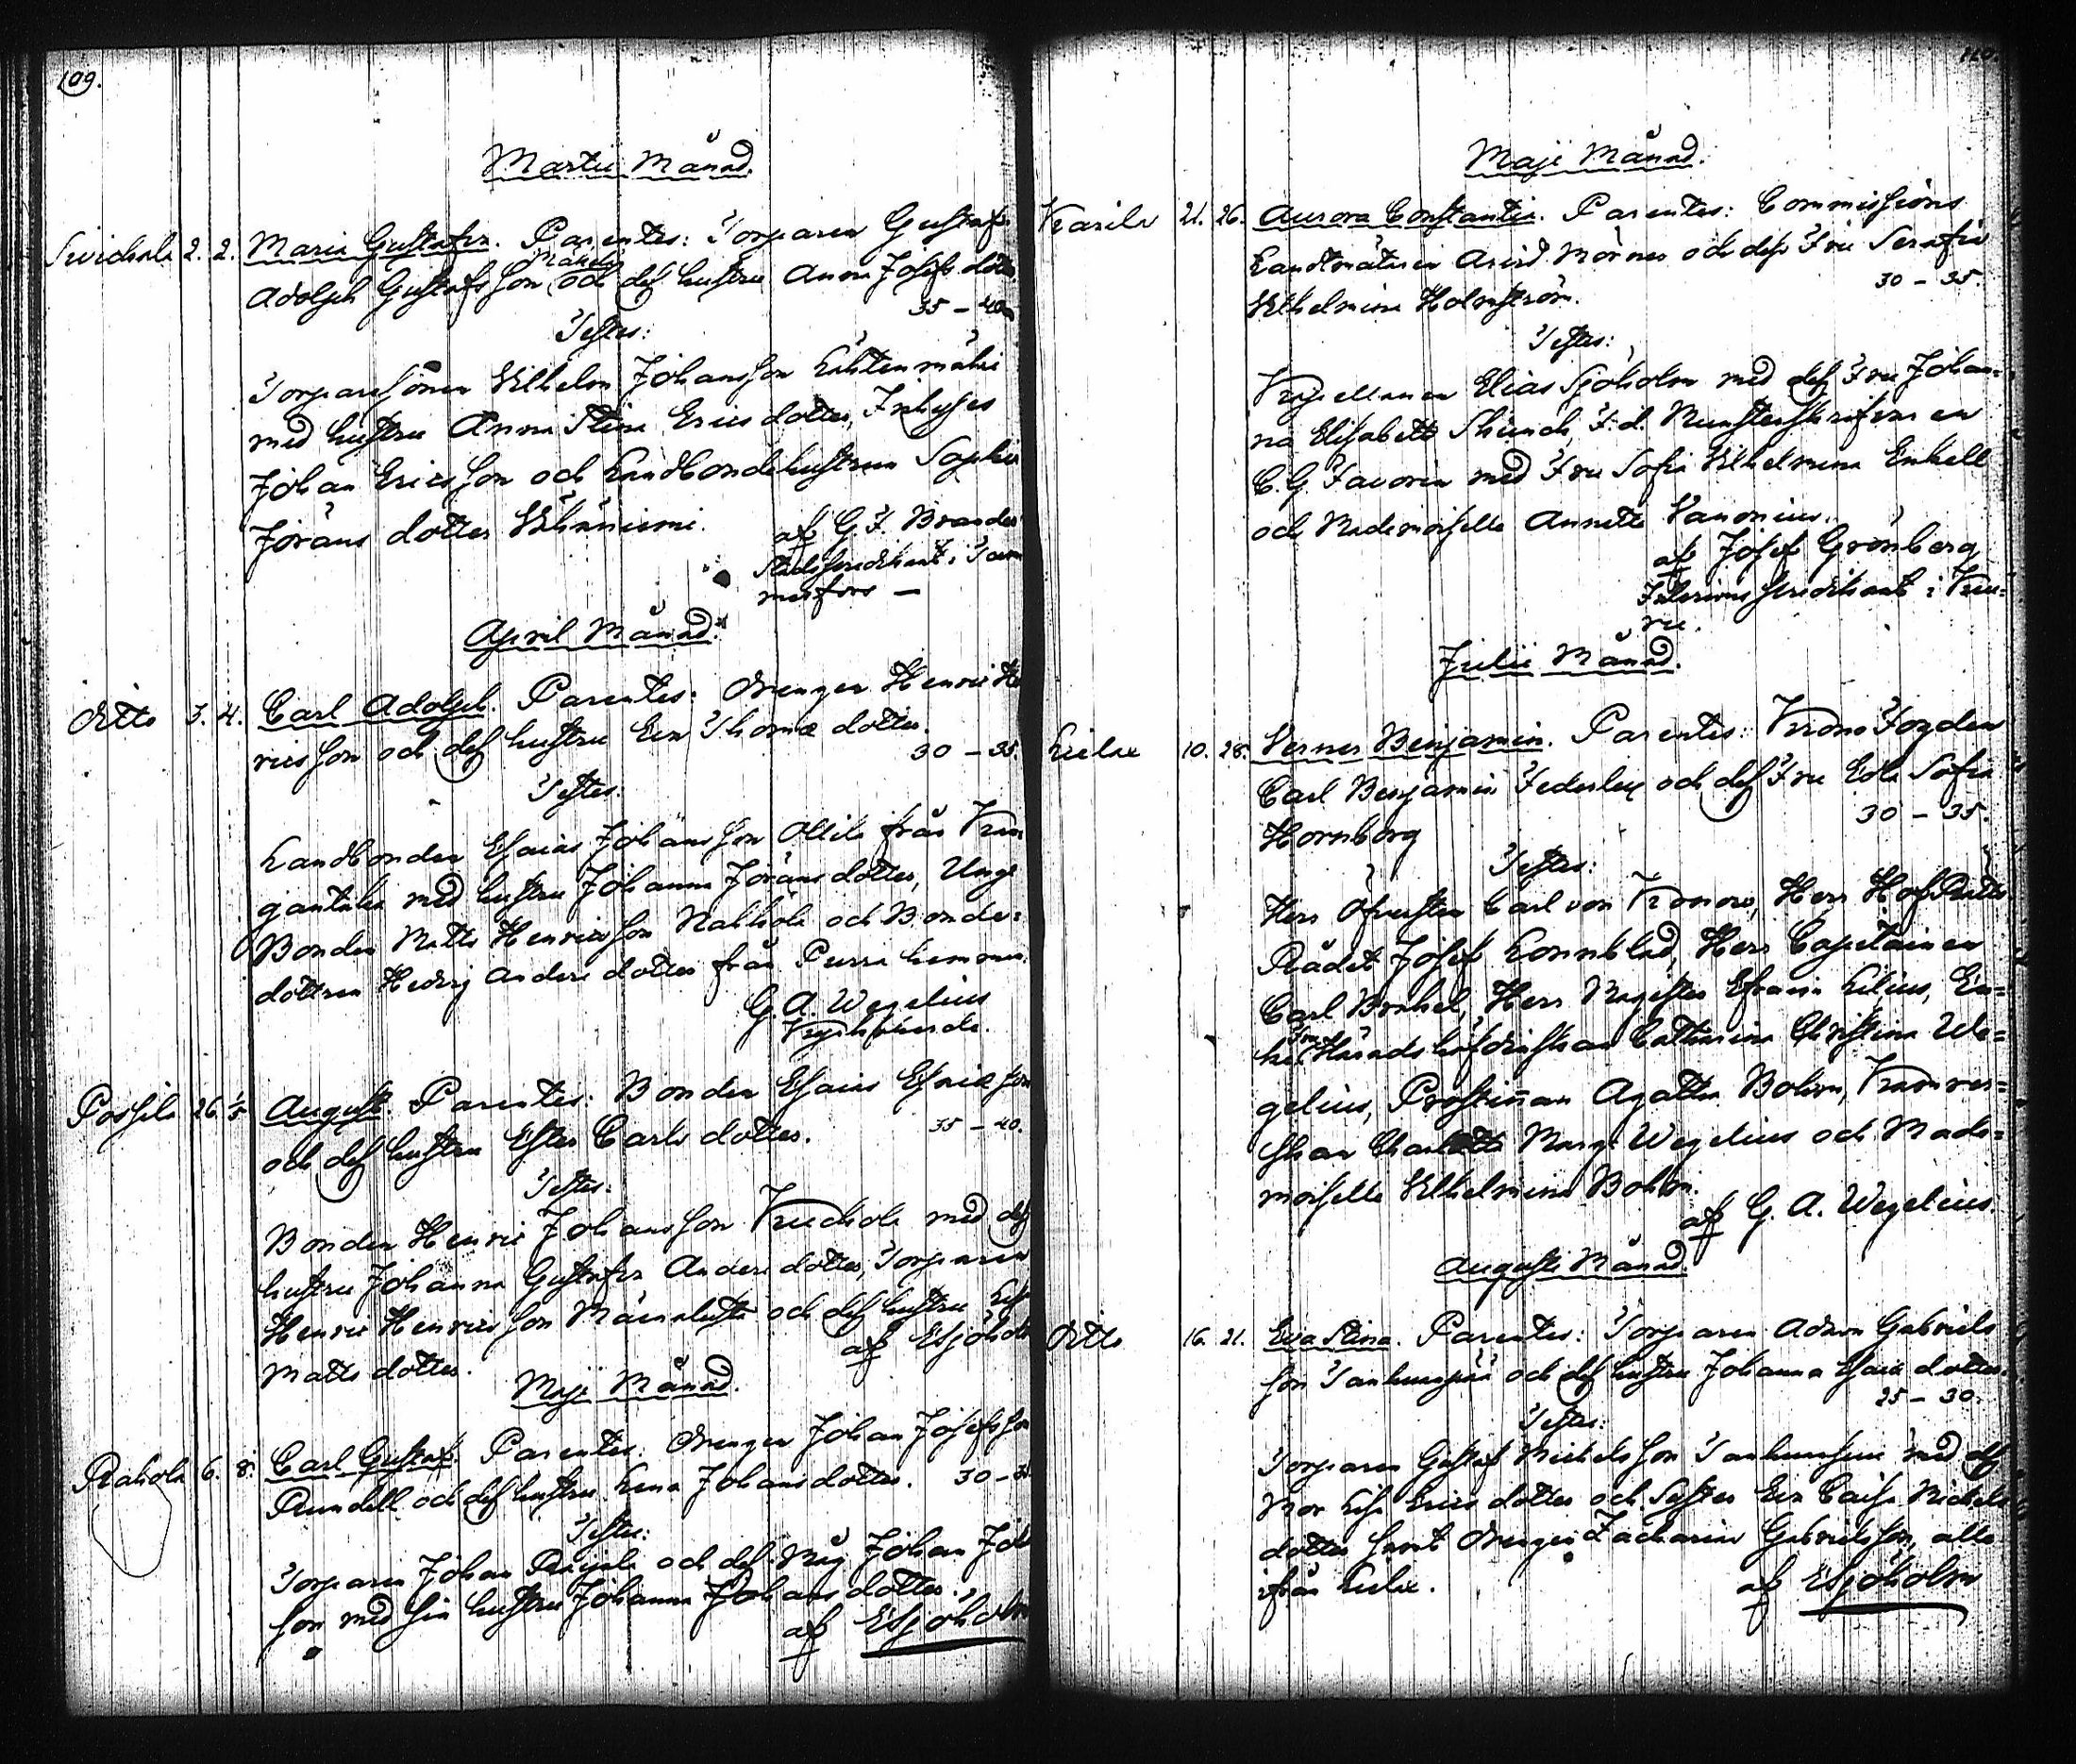 109.
Martii Månad.
Siuickala 2. 2. Maria Gustafva. Parentes: Torparen Gustaf
Mäkelä
Adolph Gustafsson och dess hustru Anna Josefs dotter
35 – 40
Testes:
Torparesonen Vilhelm Johansson Lähtenmäki
med hustru Anna Stina Erics dotter, Inhyses
Johan Ericsson och Landbondehustrun Sophia
Jörans dotter Vihäniemi.
af G. F. Brander
Stadspredikant i Tam
merfors –
April Månad.
Ditto 3. 4. Carl Adolph. Parentes: Drengen Henric Hen
ricsson och dess hustru Eva Thomæ dotter.
30 – 35.
Testes:
Landbonden Esaias Johansson Ollila från Kan
gantaka med hustru Johanna Jörans dotter, Unge
Bonden Matts Henricsson Nahkola och Bonde=
dottren Hedvig Anders dotter från Purra hemman.
G. A. Wegelius
Kyrkoherde.
Possila 26. 1/5 August. Parentes: Bonden Esaias Esaiæ son
och dess hustru Ester Carls dotter. 35 – 40.
Testes:
Bonden Henric Johansson Kuckola med dess
hustru Johanna Gustafva Anders dotter, Torparen
Henric Henricsson och dess hustru Lisa
Matts dotter. af ESjöholm
Maji Månad.
Rahola 6. 8. Carl Gustaf. Parentes: Drengen Johan Josefsson
Rundell och dess hustru Lena Johans dotter. 30 – 35.
Testes:
Torparen Johan och dess Måg Johan Joh
son med sin hustru Johanna Johans dotter.
af ESjöholm
110.
Maji Månad.
Kaarila 21. 26. Aurora Constantia. Parentes: Commissions
Landtmätaren Arvid Mörner och dess Fru Serafia
30 – 35.
Vilhelmina Holmström.
Testes:
Kapellanen Elias Sjöholm med dess Fru Johan=
na Elisabeth Skunck, F.d. Munsterskrifvaren
C. G. Favorin med Fru Sofia Vilhelmina Enkell
och Mademoiselle Annette Vanonius.
af Josef Grönberg
Interims predikant i Kuu=
ru.
Julii Månad.
Lielax 10. 28. Verner Benjamin. Parentes: Krono Fogden
Carl Benjamin Federley och dess Fru Eda Sofia
30 – 35.
Hornborg
Testes:
Herr Öfversten Carl von Kronow, Herr Hof Rätts
Rådet Josef Lonnblad, Herr Capitainen
Carl Brakel, Herr Magister Efraim Lilius, En=
Fru
ke Häradshöfdinskan Catharina Christina We=
gelius, Prostinnan Agatha Bohm, Kamrer=
skan Charlotta Marg: Wegelius och Made=
moiselle Vilhelmina Bohm.
af G. A. Wegelius.
Augusti Månad.
Ditto 16. 21. Eva Stina. Parentes: Torparen Adam Gabriels
son Tanhuanpää och dess hustru Johanna Esaiæ dotter.
25 – 30.
Testes:
Torparen Gustaf Michelsson med dess
Mor Lisa Erics dotter och Syster Eva Caisa Michels
dotter samt Drengen Zacharias Gabrielsson, alle
ifrån Lielax.
af ESjöholm